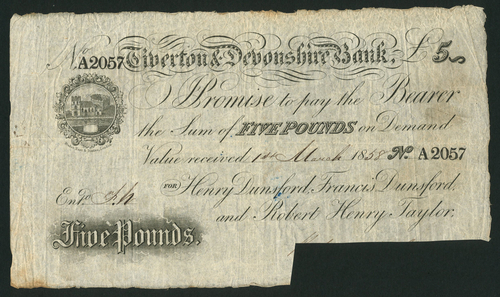 No A2057 Tiverton & Devonshire Bank, £5
I Promise to pay the Bearer
the Sum of FIVE POUNDS on Demand
Value received 1st March 1858 No A2057
FOR Henry Dunsford, Francis Dunsford,
Entd
and Robert Henry Taylor.
Five Pounds.